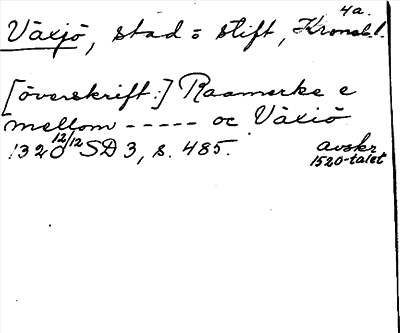 4a.
Växjö, stad o stift, Kronob.l.
[överskrift:] Raamerke e
mellom ----- oc Væxiö
1320 12/12 SD 3, s. 485. avskr
1520-talet